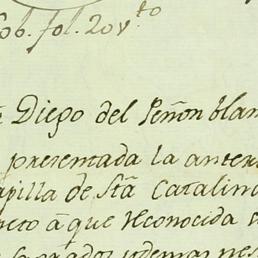 ob. fol. 20 v.to
Diego del Peñon blan
presentada la anter
apilla de Sta Catalina
eto â que reconocida